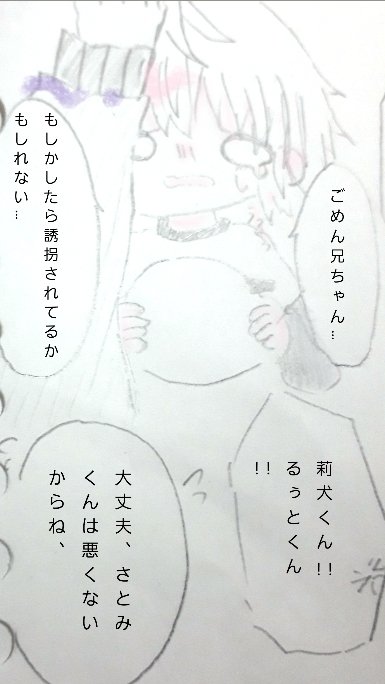 ごめん兄ちゃん…
もしかしたら誘拐されてるか
もしれない…
莉犬くん!!
るぅとくん
!!
大丈夫、さとみ
くんは悪くない
からね、